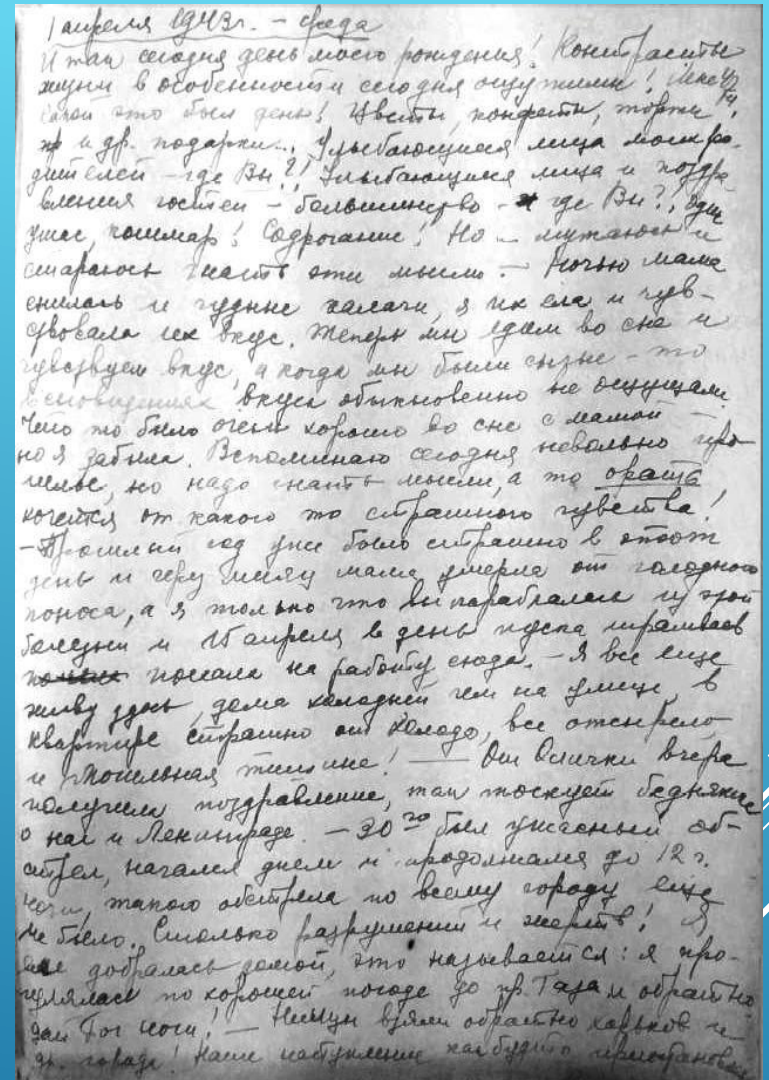 1 апреля 1943г. – среда
И так сегодня день моего рождения! Контрасты
жизни в особенности сегодня ощутимы!
какой это был день! Цветы, конфеты, торты
и др. подарки... Улыбающиеся лица моих ро-
дителей – где Вы?! Улыбающиеся лица и поздра
вления гостей – большинство – где Вы?! Один
ужас, кошмар! Содрогание! Но – мужаюсь и
стараюсь гнать эти мысли. – Ночью мама
снилась и чудные калачи, я их ела и чув-
ствовала их вкус. Теперь мы едим во сне и
чувствуем вкус, а когда мы были сытые – то
в сновидениях вкуса обыкновенно не ощущали.
Что то было очень хорошо во сне с мамой –
но я забыла. Вспоминаю сегодня невольно про-
шлое, но надо гнать мысли, а то орать
хочется от какого то страшного чувства!
– Прошлый год уже было страшно в этот
день и через месяц мама умерла от голодного
поноса, а я только что выкарабкалась из этой
болезни и 15 апреля в день пуска трамваев
пошла на работу сюда. – Я все еще
живу здесь, дома холодней чем на улице, в
квартире страшно от холода, все отсырело
и могильная тишина! – От Олички вчера
получила поздравление, так тоскует бедняжка
о нас и Ленинграде. – 30го был ужасный об-
стрел, начался днем и продолжался до 12 ч.
ночи, такого обстрела по всему городу еще
не было. Столько разрушений и жертв! Я
добралась домой, это называется: я про-
гулялась по хорошей погоде до пр. Газа и обратно
дай Бог ноги! – Немцы взяли обратно Харьков и
др. города! Наше наступление как будто приостановлено